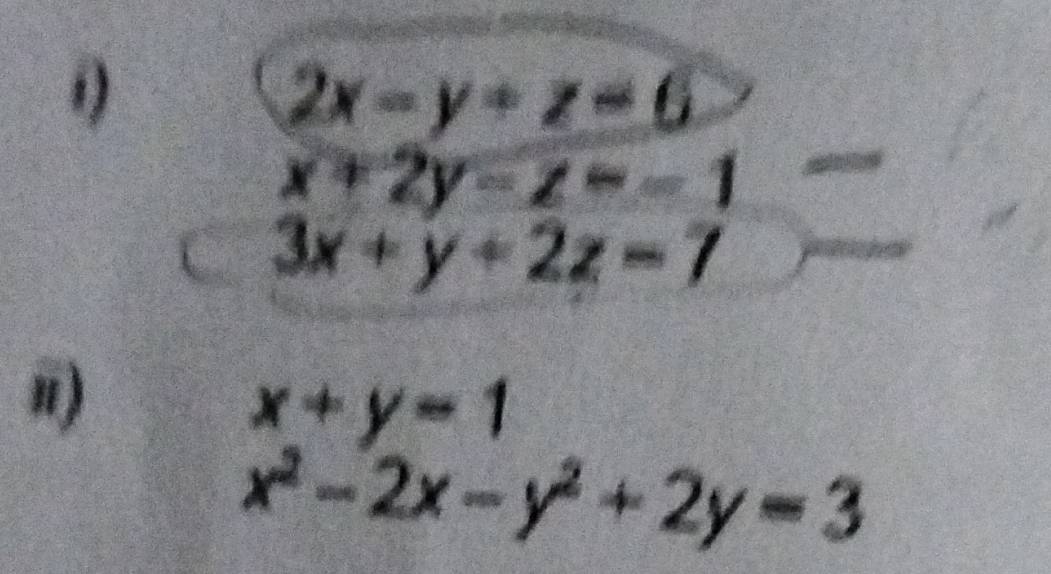 i) 2x - y + z = 6
x + 2y - z = - 1
3x + y + 2z = 7
ii) x + y = 1
x² - 2x - y² + 2y = 3